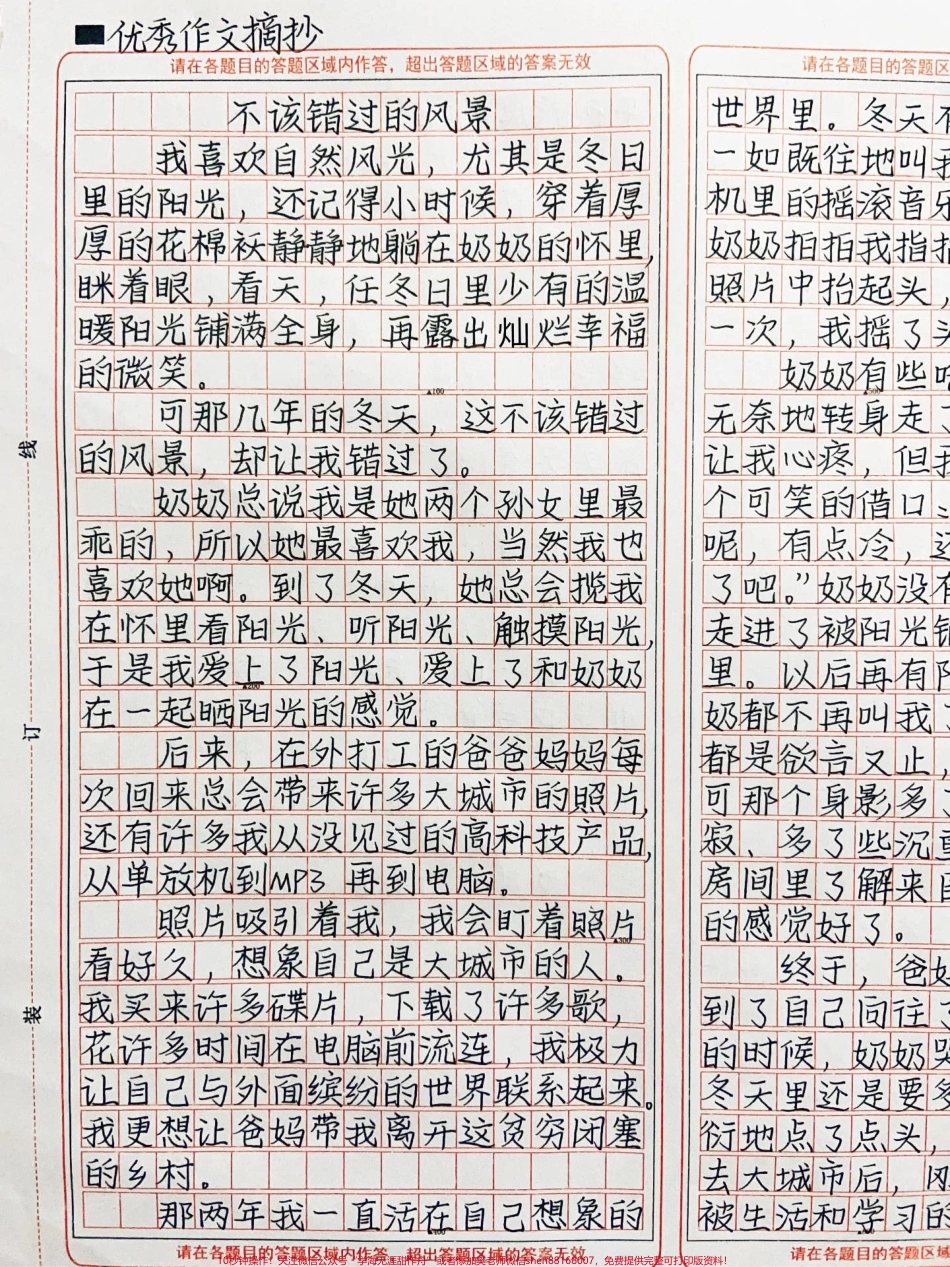 优秀作文摘抄
请在各题目的答题区域内作答，超出答题区域的答案无效
不该错过的风景
我喜欢自然风光，尤其是冬日
里的阳光，还记得小时候，穿着厚
厚的花棉袄静静地躺在奶奶的怀里，
眯着眼，看天，任冬日里少有的温
暖阳光铺满全身，再露出灿烂幸福
的微笑。
▲100
可那几年的冬天，这不该错过
的风景，却让我错过了。
奶奶总说我是她两个孙女里最
乖的，所以她最喜欢我，当然我也
喜欢她啊。到了冬天，她总会揽我
在怀里看阳光、听阳光、触摸阳光，
于是我爱上了阳光、爱上了和奶奶
▲200
在一起晒阳光的感觉。
后来，在外打工的爸爸妈妈每
次回来总会带来许多大城市的照片，
还有许多我从没见过的高科技产品，
从单放机到MP3 再到电脑。
照片吸引着我，我会盯着照片
▲300
看好久，想象自己是大城市的人。
我买来许多碟片，下载了许多歌，
花许多时间在电脑前流连，我极力
让自己与外面缤纷的世界联系起来。
我更想让爸妈带我离开这贫穷闭塞
的乡村。
那两年我一直活在自己想象的
▲400
请在各题目的答题区域内作答，超出答题区域的答案无效
线
订
装
请在各题目的答题区
世界里。冬天
一如既往地叫我
机里的摇滚音乐
奶奶拍拍我指
照片中抬起头，
一次，我摇了头
奶奶有些
无奈地转身走、
让我心疼，但我
个可笑的借口
呢，有点冷，还
了吧。”奶奶没有
走进了被阳光铺
里。以后再有阳
奶都不再叫我
都是欲言又止，
可那个身影多了
寂、多了些沉重
房间里了解来自
的感觉好了。
终于，爸妈
到了自己向往了
的时候，奶奶哭
冬天里还是要多
衍地点了点头，
去大城市后，刚
被生活和学习的
请在各题目的答题区